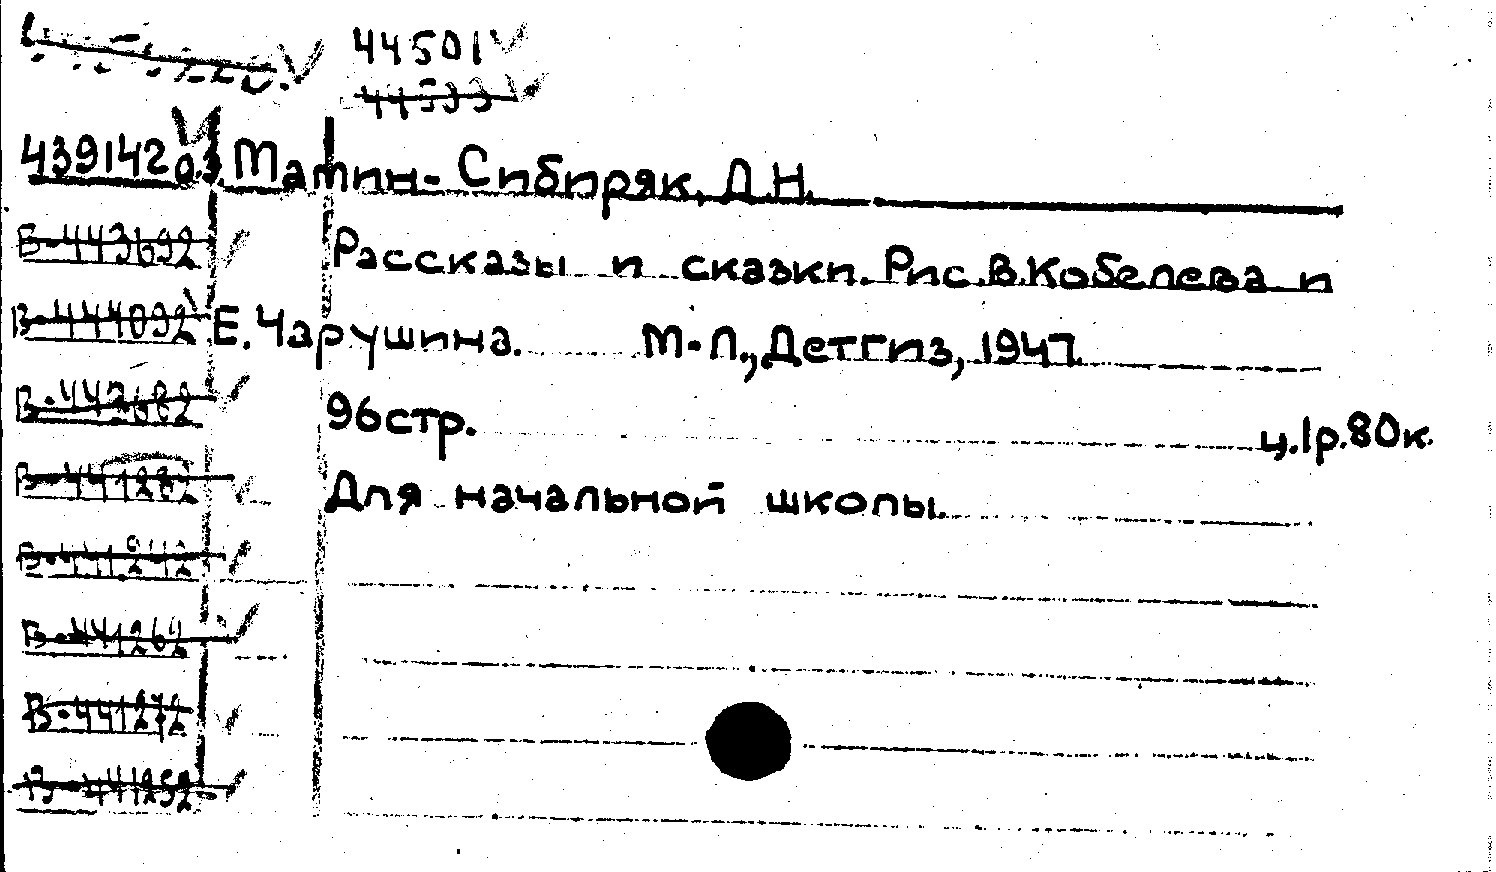 44501
44533
439142 о.з.
Мамин-Сибиряк, Д.Н.
В-443692
Рассказы и сказки. Рис. В. Кобелева и
В-444092
Е. Чарушина. М-Л., Детгиз, 1947
В-443682
96стр. ц.1р.80к.
В-441282
Для начальной школы.
В-441242
В-441262
В-441272
В-441252